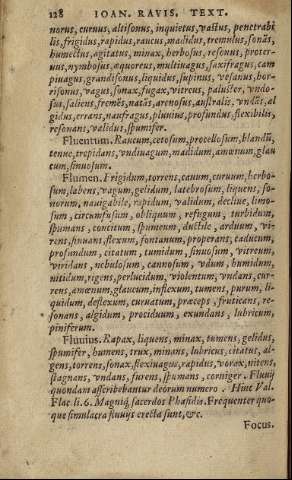 128 IOAN. RAVIS. TEXT.
norus, curuus, altisonus, inquietus, vastus, penetrabi
lis, frigidus, rapidus, raucus, madidus, tremulus, sonās,
humectus, agitatus, minax, herbosus, resonus, proter-
uus, nymbosus, æquoreus, multiuagus, saxifragus, cam
piuagus, grandisonus, liquidus, supinus, vesanus, hor-
risonus, vagus, sonax, fugax, vitreus, paluster, vndo-
sus, saliens, fremēs, natās, arenosus, australis, vndās, al
gidus, errans, naufragus, pluuius, profundus, flexibilis,
resonans, validus, spumifer.
Fluentum. Raucum, cetosum, procellosum, blandū,
tenue, trepidans, vndiuagum, madidum, amœnum, glau
cum, sinuosum.
Flumen. Frigidum, torrens, canum, curuum, herbo-
sum, labens, vagum, gelidum, latebrosum, liquens, so-
norum, nauigabile, rapidum, validum, decliue, limo-
sum, circumfusum, obliquum, refugum, turbidum,
spumans, concitum, spumeum, ductile, arduum, vi-
rens, sinuans, flexum, fontanum, properans, caducum,
profundum, citatum, tumidum, sinuosum, vitreum,
viridans, nebulosum, cannosum, vdum, humidum,
nitidum, rigens, perlucidum, violentum, vndans, cur-
rens, amœnum, glaucum, inflexum, tumens, purum, li-
quidum, deflexum, curuatum, præceps, fruticans, re-
sonans, algidum, prociduum, exundans, lubricum,
piniferum.
Fluuius. Rapax, liquens, minax, tumens, gelidus,
spumifer, humens, trux, minans, lubricus, citatus, al-
gens, torrens, sonax, flexiuagus, rapidus, vorax, nitens,
stagnans, vndans, furens, spumans, corniger. Fluuij
quondam asscribebantur deorum numero. Hinc Val.
Flac li. 6. Magniq́; sacerdos Phasidis. Frequenter quo-
que simulacra fluuijs erecta sunt, &c.
Focus.